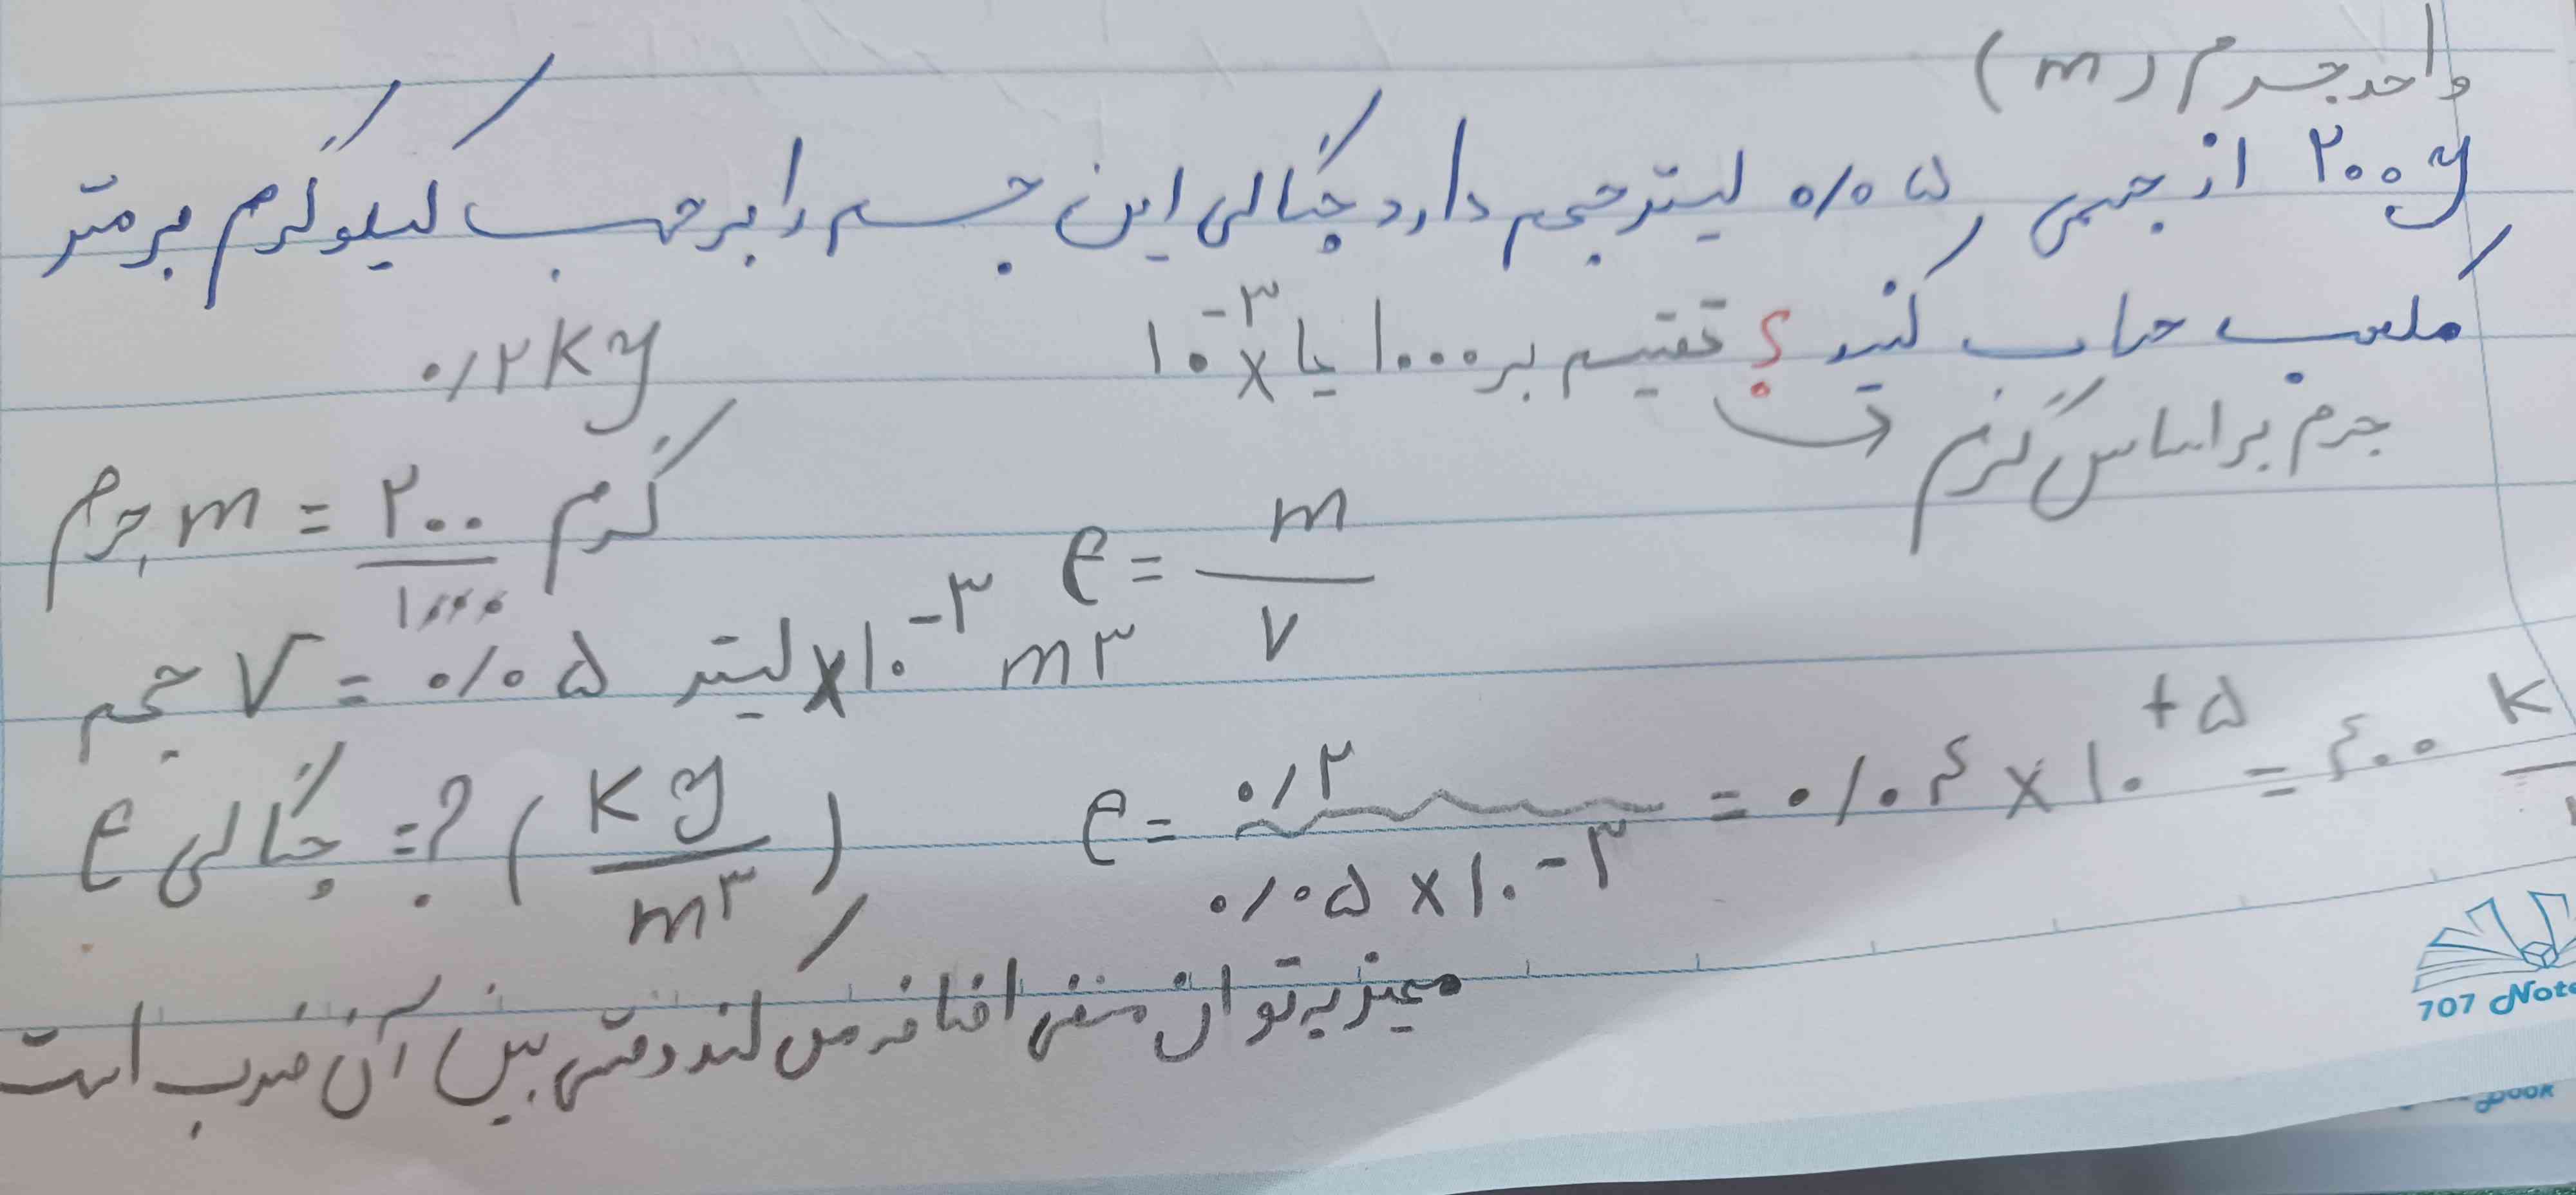 واحد جرم (m)
۲۰۰g از جسمی ۰/۰۵ لیتر حجم دارد چگالی این جسم را بر حسب کیلوگرم بر متر
مکعب حساب کنید ؟ تقسیم بر ۱۰۰۰ یا ×۱۰⁻³
جرم بر اساس گرم
۰/۲ kg
جرم m = ۲۰۰/۱۰۰۰ گرم
ρ = m/V
حجم V = ۰/۰۵ لیتر ×۱۰⁻³ m³
ρ = ۰/۲ / ۰/۰۵×۱۰⁻³ = ۰/۰۴×۱۰⁺⁵ = ۴۰۰ k
چگالی ρ = ? (kg/m³)
ممیز به توان منفی اضافه می کند وقتی بین آن ضرب است
707 Note
book